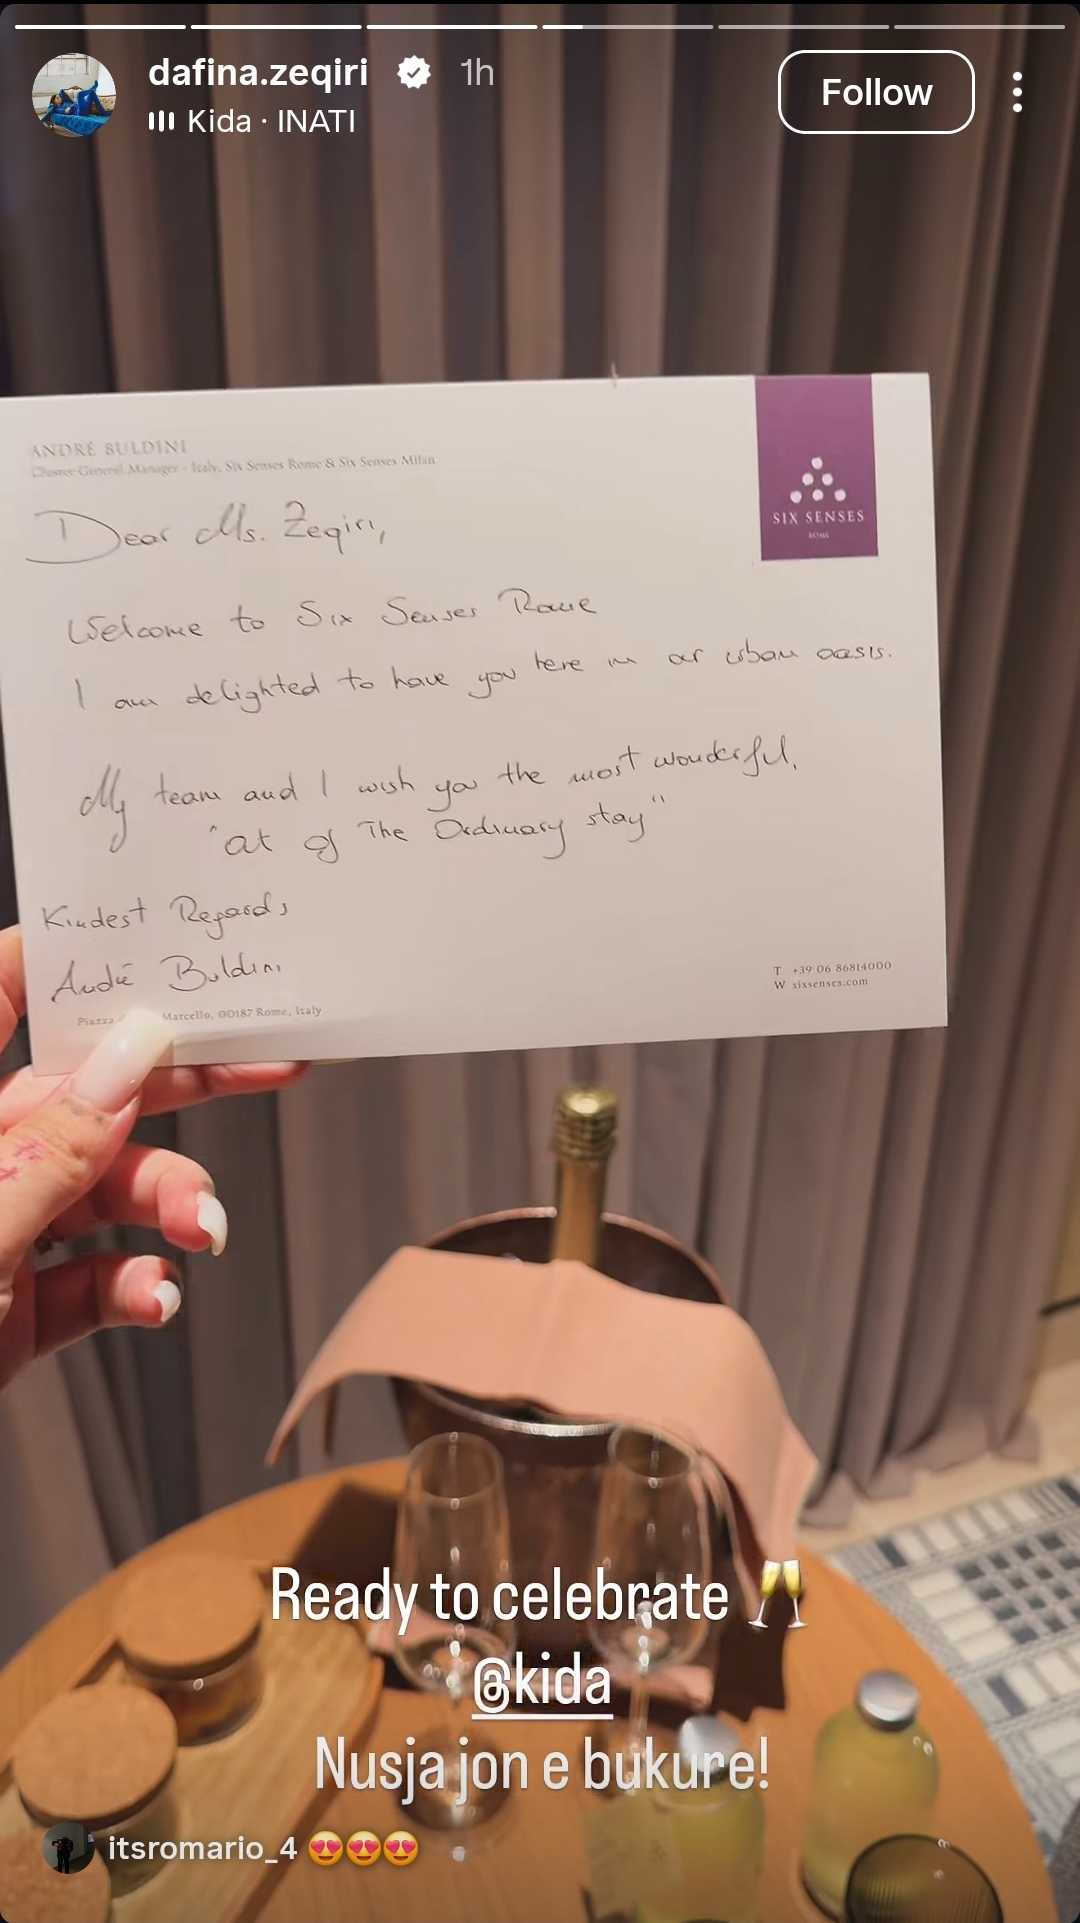 dafina.zeqiri 1h
Kida · INATI
Follow
ANDRÉ BULDINI
Cluster General Manager - Italy, Six Senses Rome & Six Senses Milan
SIX SENSES
ROME
Dear Ms. Zeqiri,
Welcome to Six Senses Rome
I am delighted to have you here in our urban oasis.
My team and I wish you the most wonderful,
"Out of The Ordinary stay"
Kindest Regards
André Buldini
T +39 06 86814000
W sixsenses.com
Piazza Marcello, 00187 Rome, Italy
Ready to celebrate 🥂
@kida
Nusja jon e bukure!
itsromario_4 😍😍😍